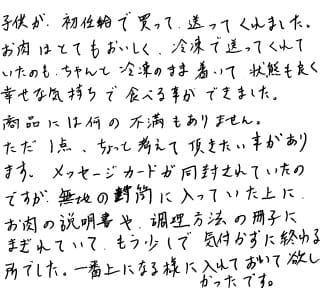 子供が、初任給で買って、送ってくれました。
お肉はとてもおいしく、冷凍で送ってくれて
いたのも、ちゃんと冷凍のまま着いて状態も良く
幸せな気持ちで食べる事ができました。
商品には何の不満もありません。
ただ1点、ちょっと考えて頂きたい事があり
ます。メッセージカードが同封されていたの
ですが、無地の封筒に入っていた上に、
お肉の説明書や、調理方法の冊子に
まぎれていて、もう少しで気付かずに終わる
所でした。一番上になる様に入れておいて欲し
かったです。